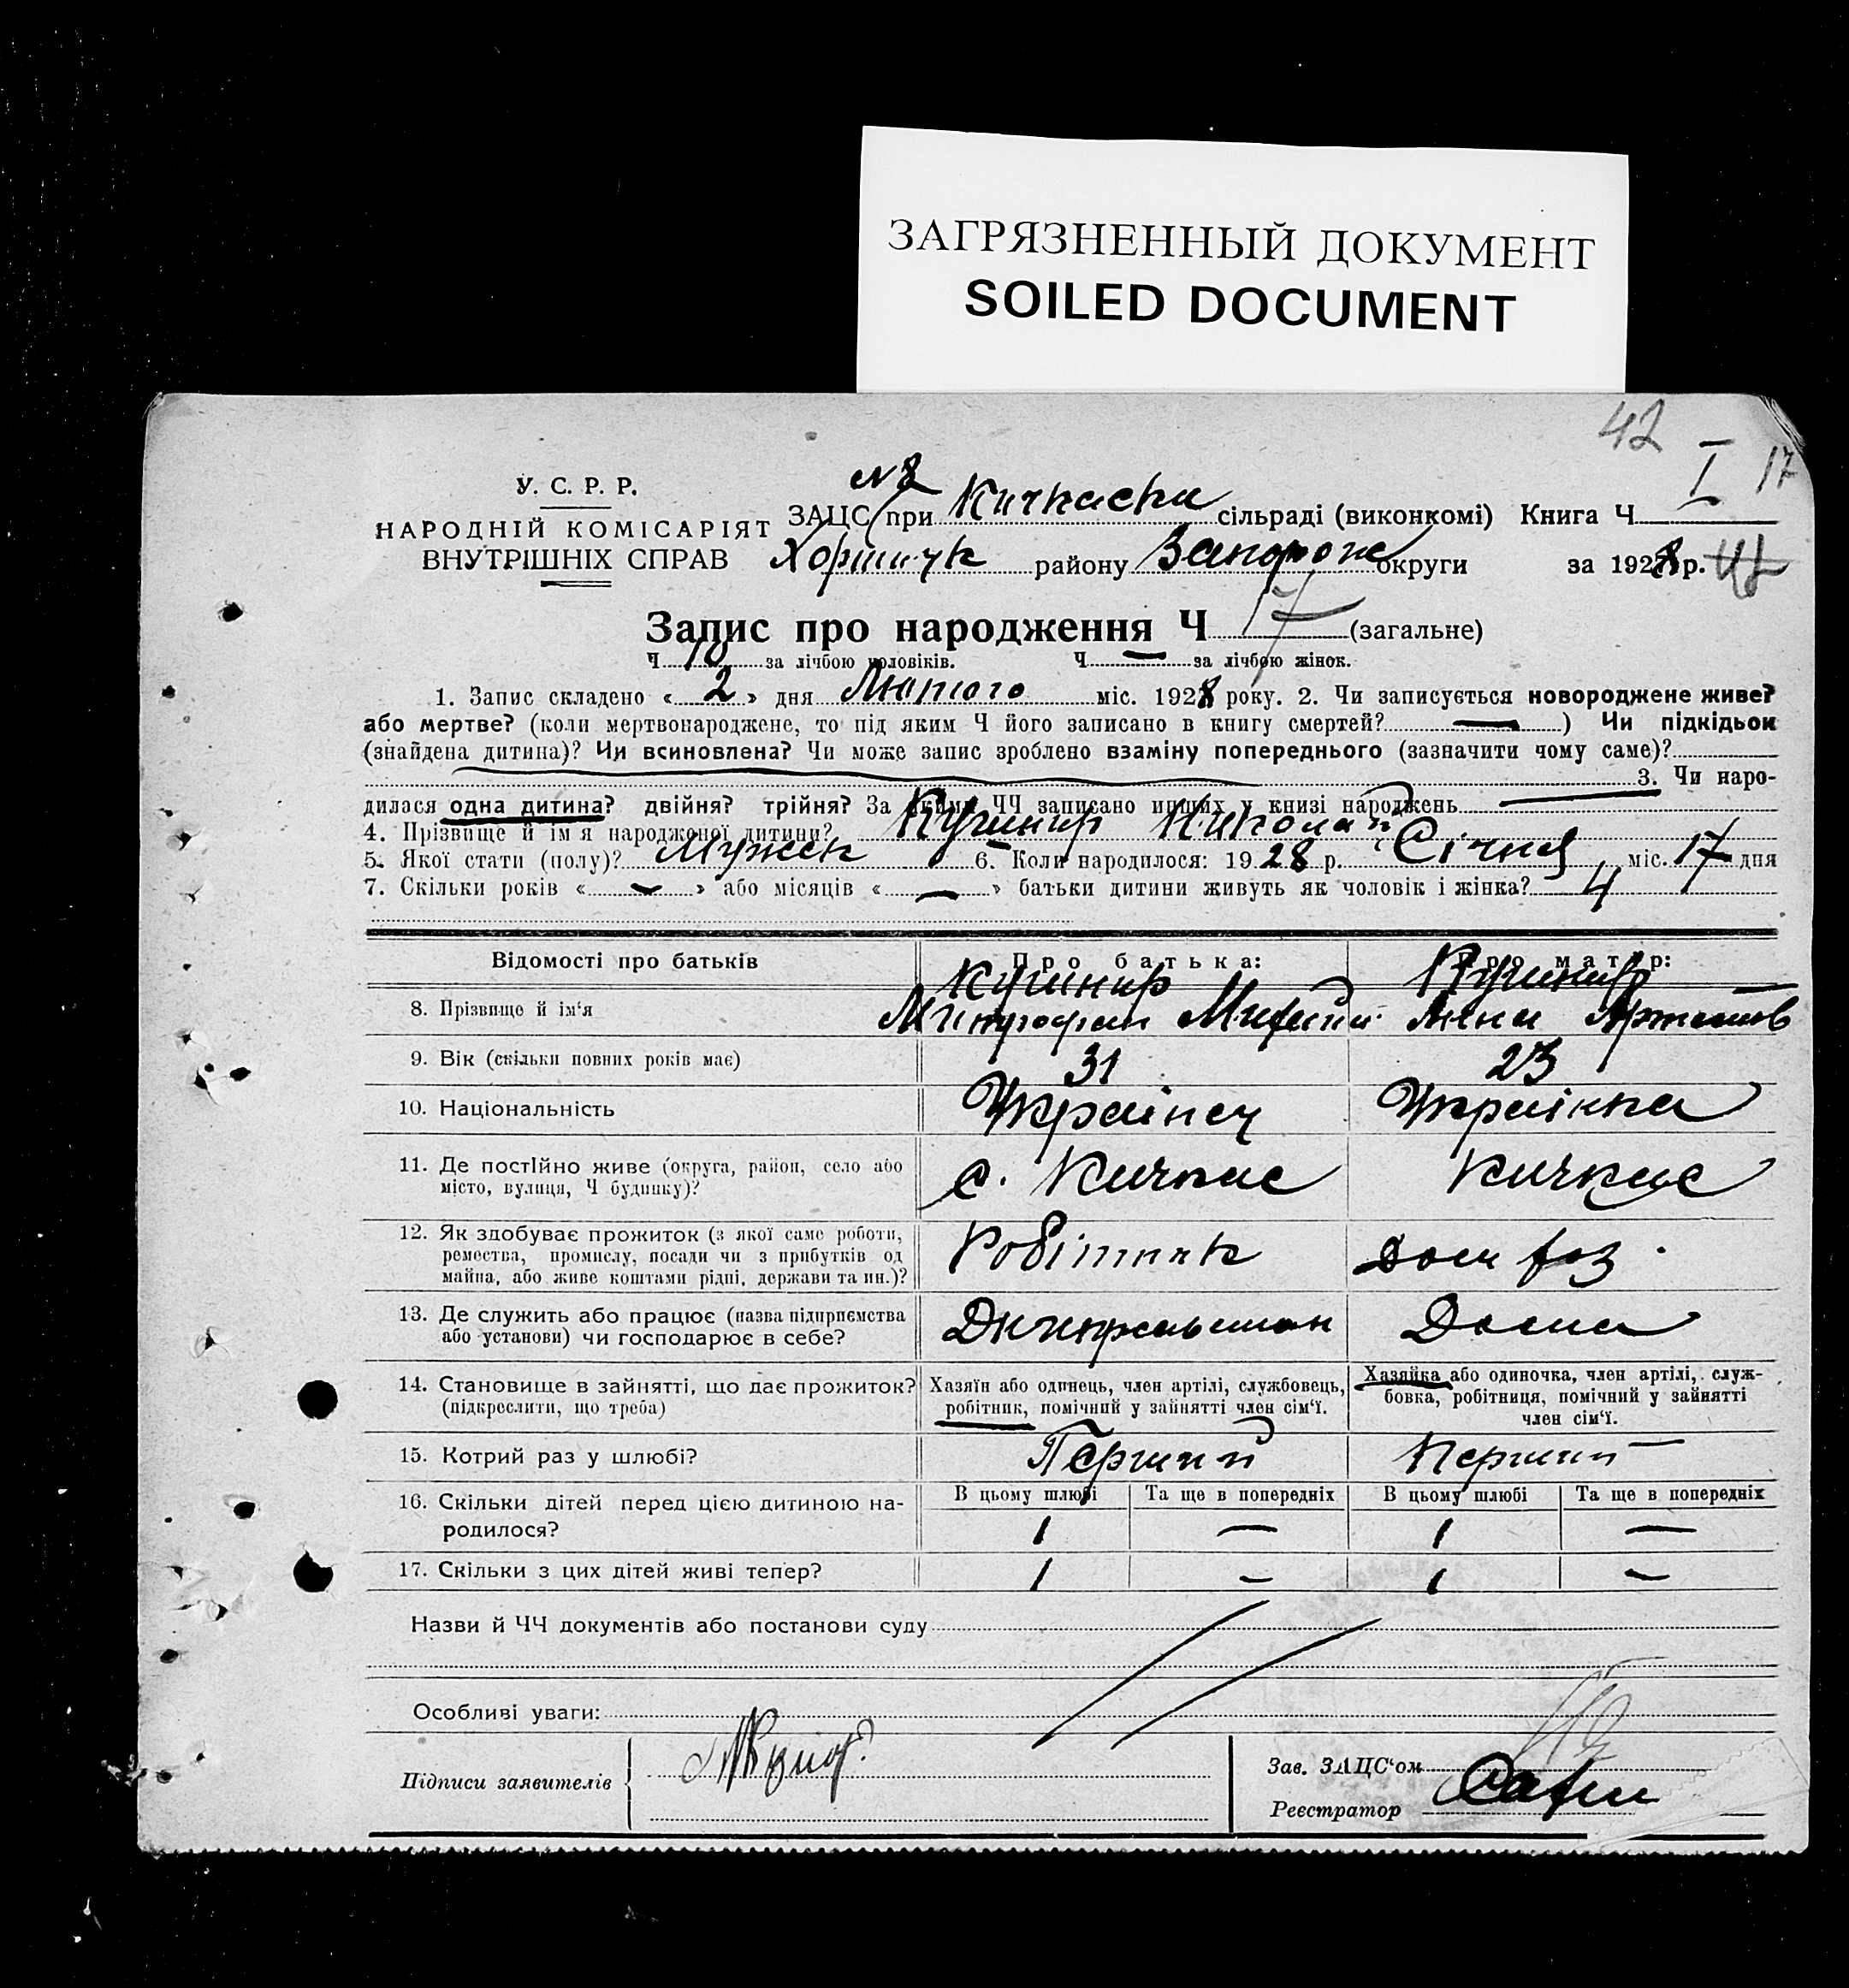 ЗАГРЯЗНЕННЫЙ ДОКУМЕНТ
SOILED DOCUMENT
42
I 17
У. С. Р. Р.
НАРОДНІЙ КОМІСАРІЯТ
ВНУТРІШНІХ СПРАВ
N 8
ЗАЦС при Кичкаськ сільраді (виконкомі) Книга Ч.
району Запорож округи за 1928 р.
Запис про народження Ч 17 (загальне)
Ч 10 за лічбою чоловіків. Ч — за лічбою жінок.
1. Запис складено « 2 » дня Лютого міс. 1928 року. 2. Чи записується новороджене живе?
або мертве? (коли мертвонароджене, то під яким Ч його записано в книгу смертей? — ) Чи підкідьок
(знайдена дитина)? Чи всиновлена? Чи може запис зроблено взаміну попереднього (зазначити чому саме)?
3. Чи наро-
дилася одна дитина? двійня? трійня? За якими ЧЧ записано инших у книзі народжень —
4. Прізвище й ім'я народженої дитини? Кушнир Николай
5. Якої стати (полу)? Мужск 6. Коли народилося: 1928 р. Січня міс. 17 дня
7. Скільки років « — » або місяців « — » батьки дитини живуть як чоловік і жінка? 4
Відомості про батьків Про батька: Про матір:
8. Прізвище й ім'я Кушнир Митрофан Кушнир Анна
9. Вік (скільки повних років має) 31 23
10. Національність Украінец Украінка
11. Де постійно живе (округа, район, село або
місто, вулиця, Ч будинку)? с. Кичкас Кичкас
12. Як здобуває прожиток (з якої саме роботи,
ремества, промислу, посади чи з прибутків од
майна, або живе коштами рідні, держави та ин.)? Робітник Дом хоз.
13. Де служить або працює (назва підприємства
або установи) чи господарює в себе? Дома
14. Становище в зайнятті, що дає прожиток?
(підкреслити, що треба)
Хазяїн або одинець, член артілі, службовець,
робітник, помічний у зайнятті член сім'ї.
Хазяйка або одиночка, член артілі, служ-
бовка, робітниця, помічний у зайнятті
член сім'ї.
15. Котрий раз у шлюбі? Перший Перший
16. Скільки дітей перед цією дитиною на-
родилося?
В цьому шлюбі Та ще в попередніх В цьому шлюбі Та ще в попередніх
1 — 1 —
17. Скільки з цих дітей живі тепер? 1 — 1 —
Назви й ЧЧ документів або постанови суду
Особливі уваги:
Підписи заявителів
Зав. ЗАЦС'ом
Реєстратор